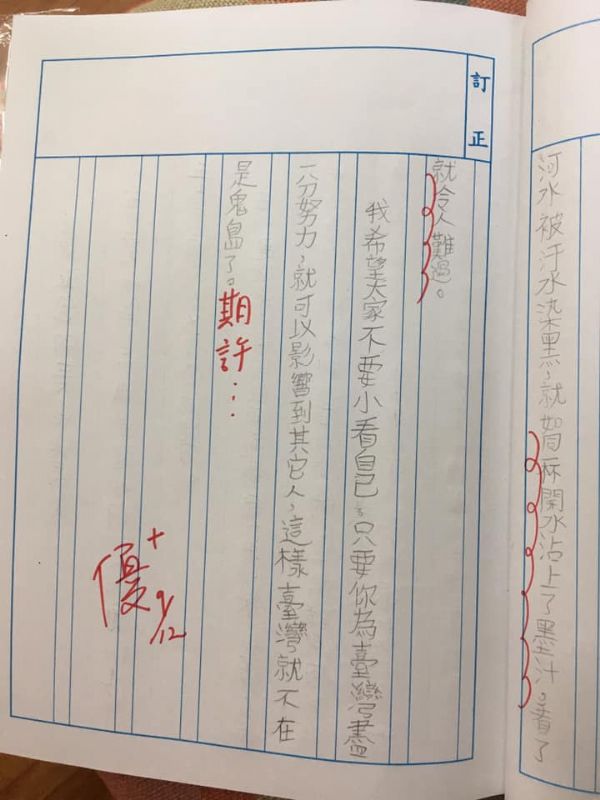 河水被汙水染黑，就如同一杯開水沾上了墨汁。看了
訂正
就令人難過。
我希望大家不要小看自己，只要你為臺灣盡
一分努力，就可以影響到其它人，這樣臺灣就不在
是鬼島了。期許…
優+
9/12